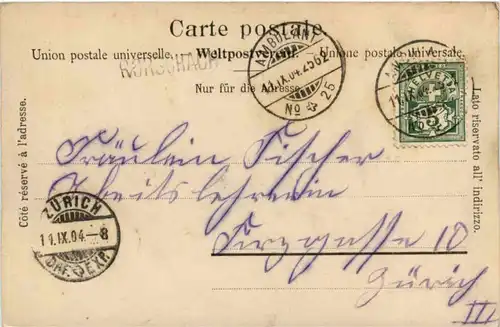 Carte postale
Union postale universelle. — Weltpostverein. — Unione postale universale.
RORSCHACH
Nur für die Adresse.
AMBULANT
11.IX.04. 2562
No 25
HELVETIA
5
Côté réservé à l'adresse.
Lato riservato all' indirizzo.
Fräulein Fischer
Arbeitslehrerin
10
Zürich
III
ZÜRICH
11.IX.04–8
BRF. EXP.